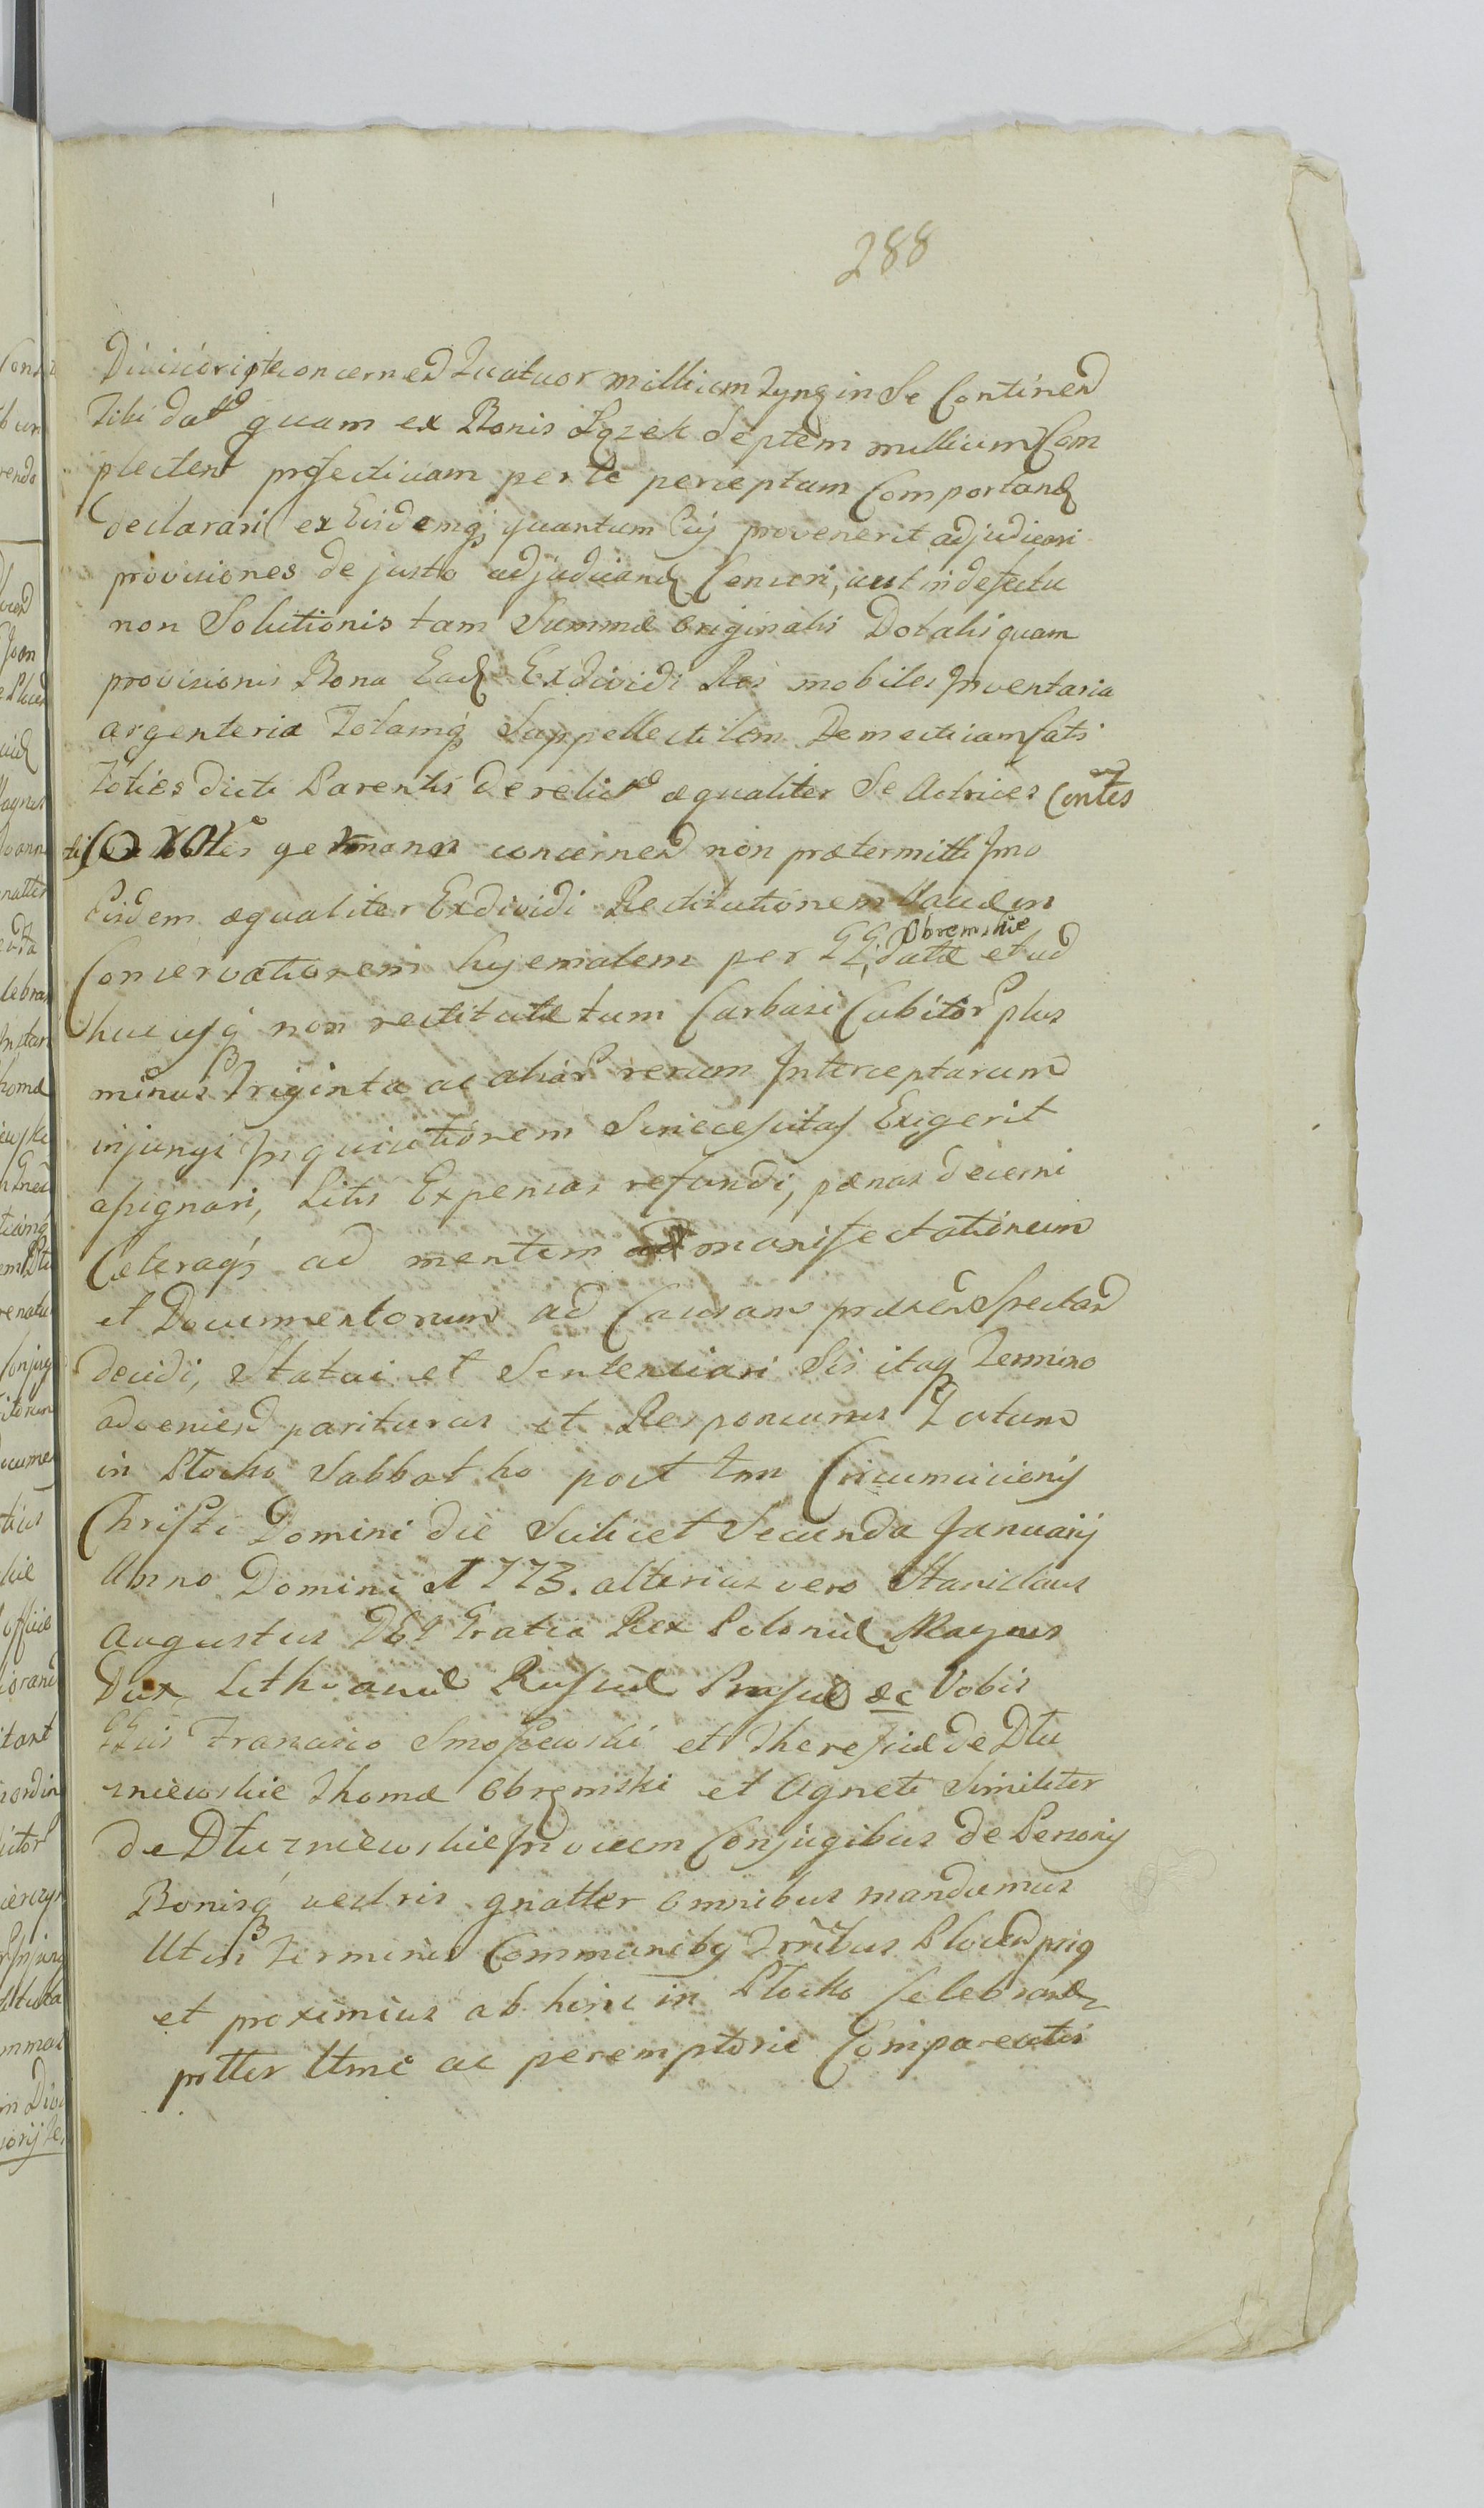 288
concernen Quatuor millium Tynf in Se Continen
Tibi dat quam ex Bonis Łązek Septem millium Com
plecten profectivam per te perceptam Comportand
declarari ex Eisdemq quantum Eis provenerit adjudicari
provisiones de justo adjudicand Censeri, aut in defectu
non Solutionis tam Summæ originalis Dotalis quam
provisionis Bona Ead Exdividi Res mobiles Inventaria
argenteria Totamq Suppellectilem Domesticam fati
Toties dicti Parentis derelict æqualiter Se Actrices Contes
germanas concernen non prætermitti Imo
Eisdem æqualiter Exdividi Restitutionem Vaccæ in
Conservationem hyemalem per GG Obremskie datæ et ad
huc usq non restitutæ tum Carbasi Cubitor plus
minus Triginta ac aliar rerum Interceptarum
injungi Inquisitionem Si necessitas Exigerit
assignari, Litis Expensas refundi, pænas decerni
Cæteraq ad mentem manifestationum
et Documentorum ad Causam præsen Spectan
decidi, Statui et Sententiari Sis itaq Termino
advenien pariturus et Responsurus Datum
in Płocko Sabbatho post tum Circumcisionis
Christi Domini die Scilicet Secunda Januarij
Anno Domini 1773. alterius vero Stanislaus
Augustus DEI Gratia Rex Poloniæ Magnus
Dux Lithvaniæ Russiæ Prussiæ &c Vobis
GGsis Francisco Smoszewski et Theresiæ de Dłu
zniewskie Thomæ Obręmski et Agneti Similiter
de Dłuzniewskie Invicem Conjugibus de Personis
Bonisq vestris gnatter omnibus mandamus
Utisi Terminis Communiby Trribus Plocen prig
et proximius ab hinc in Płocko Celebrand
pntter ttmæ ac peremptorie Compareatis